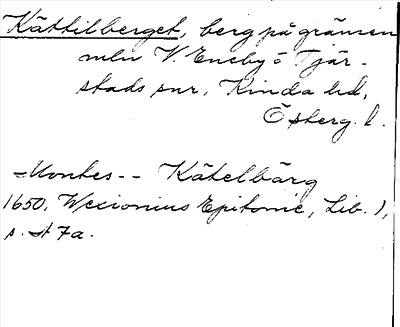 Kättilberget, berg på gränsen
mln V. Eneby o. Tjär-
stads snr, Kinda hd,
Österg. l.
Montes -- Kätelbärg
1650. Wexionius Epitome, Lib. 1,
s. A 7a.